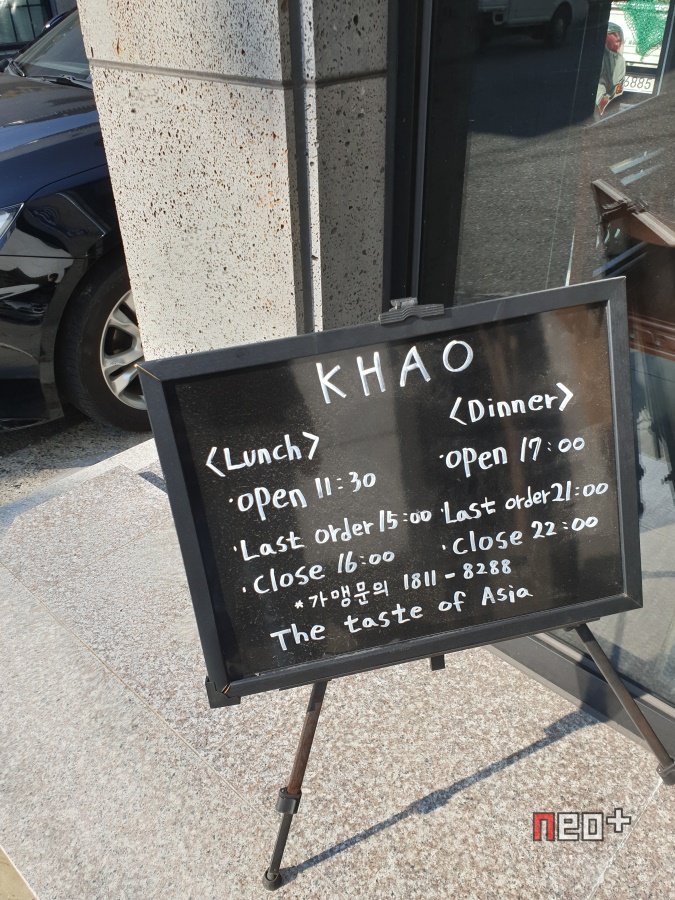 KHAO
<Lunch>
·open 11:30
·Last order 15:00
·Close 16:00
<Dinner>
·open 17:00
·Last order 21:00
·Close 22:00
*가맹문의 1811-8288
The taste of Asia
neo+